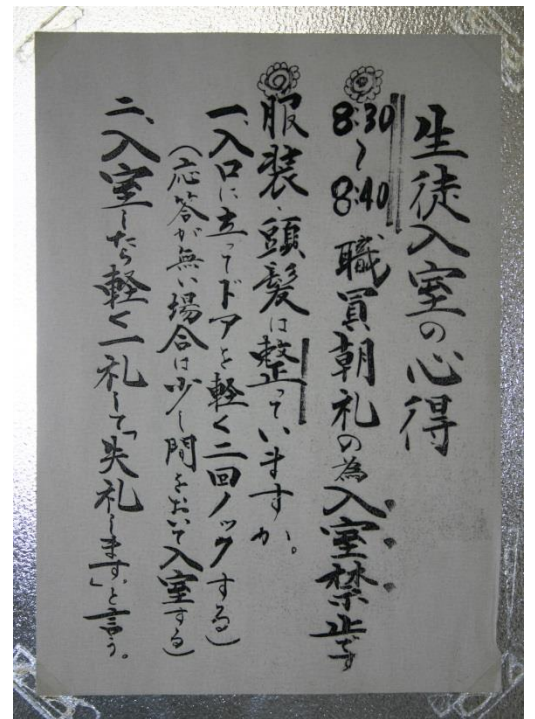 生徒入室の心得
8:30～8:40 職員朝礼の為入室禁止です
服装・頭髪は整っていますか。
一、入口に立ってドアを軽く二回ノックする
（応答が無い場合は少し間をおいて入室する）
二、入室したら軽く一礼して「失礼します」と言う。